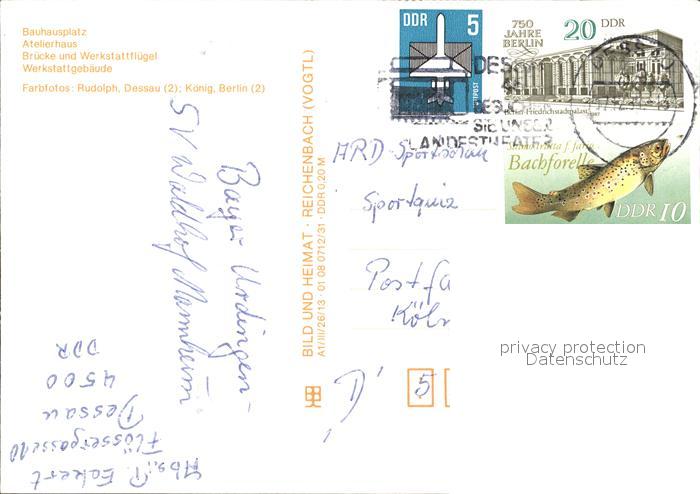 Bauhausplatz
Atelierhaus
Brücke und Werkstattflügel
Werkstattgebäude
Farbfotos: Rudolph, Dessau (2); König, Berlin (2)
Bayer Uerdingen -
SV Waldhof Mannheim
Abs.: P. Eckert
Flössergasse 10
Dessau
4500
DDR
BILD UND HEIMAT · REICHENBACH (VOGTL)
A1/III/26/13 · 01 08 0712/31 · DDR 0,20 M
DDR 5
LUFTPOST
750
JAHRE
BERLIN
20 DDR
Berlin-Friedrichstadtpalast
Bachforelle
DDR 10
DESSAU
BESUCHEN
SIE UNSER
LANDESTHEATER
ARD-Sportschau
Sportquiz
Postfa
Köln
D
5
privacy protection
Datenschutz